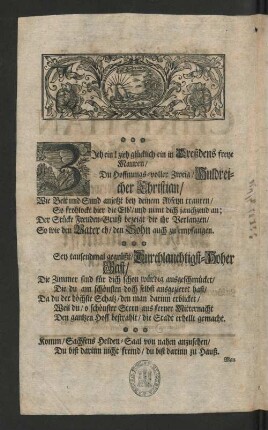 Zieh ein / zieh glücklich ein in Dreßdens freye
Mauren /
Du Hoffnungs-voller Zweig / Huldreicher
Christian /
Wie Belt und Sund anietzt bey deinem Abseyn trauren /
So frohlockt hier die Elb / und nimt dich jauchzend an;
Der Stücke Freuden-Gruß bezeigt dir ihr Verlangen /
So wie den Vater eh / den Sohn auch zu empfangen.
Sey tausendmal gegrüßt / Durchlauchtigst-Hoher
Gast /
Die Zimmer sind für dich schon würdig ausgeschmücket /
Die du am schönsten doch selbst ausgezieret hast /
Da du der höchste Schatz / den man darinn erblicket /
Weil du / o schönster Stern aus ferner Mitternacht
Den gantzen Hoff bestrahlt / die Stadt erhellt gemacht.
Komm / Sachsens Helden-Saal von nahen anzusehen /
Du bist darinn nicht fremd / du bist darinn zu Hauß.